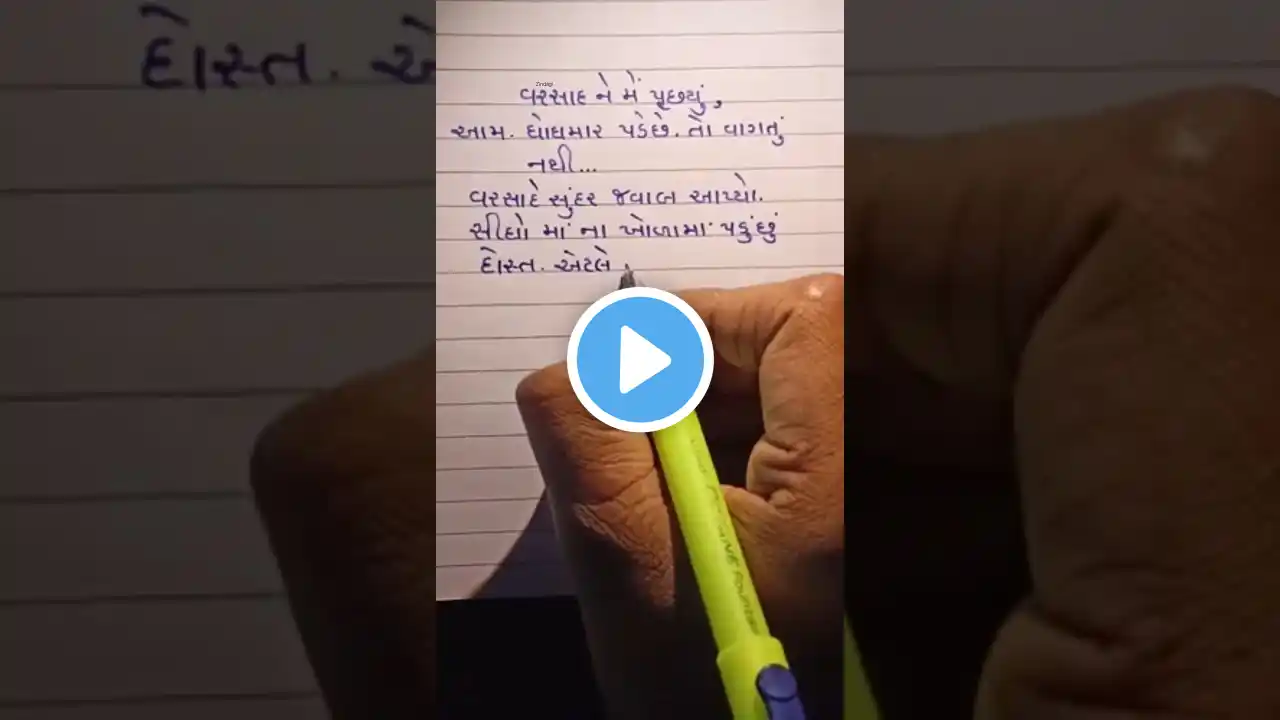 વરસાદ ને મેં પૂછયું,
આમ. ધોધમાર પડેછે. તો વાગતું
નથી...
વરસાદે સુંદર જવાબ આપ્યો.
સીધો માં ના ખોળામાં પડુંછું
દોસ્ત. એટલે